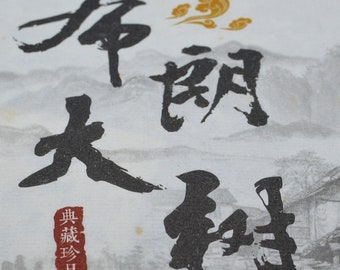 布朗
大树
典藏珍品